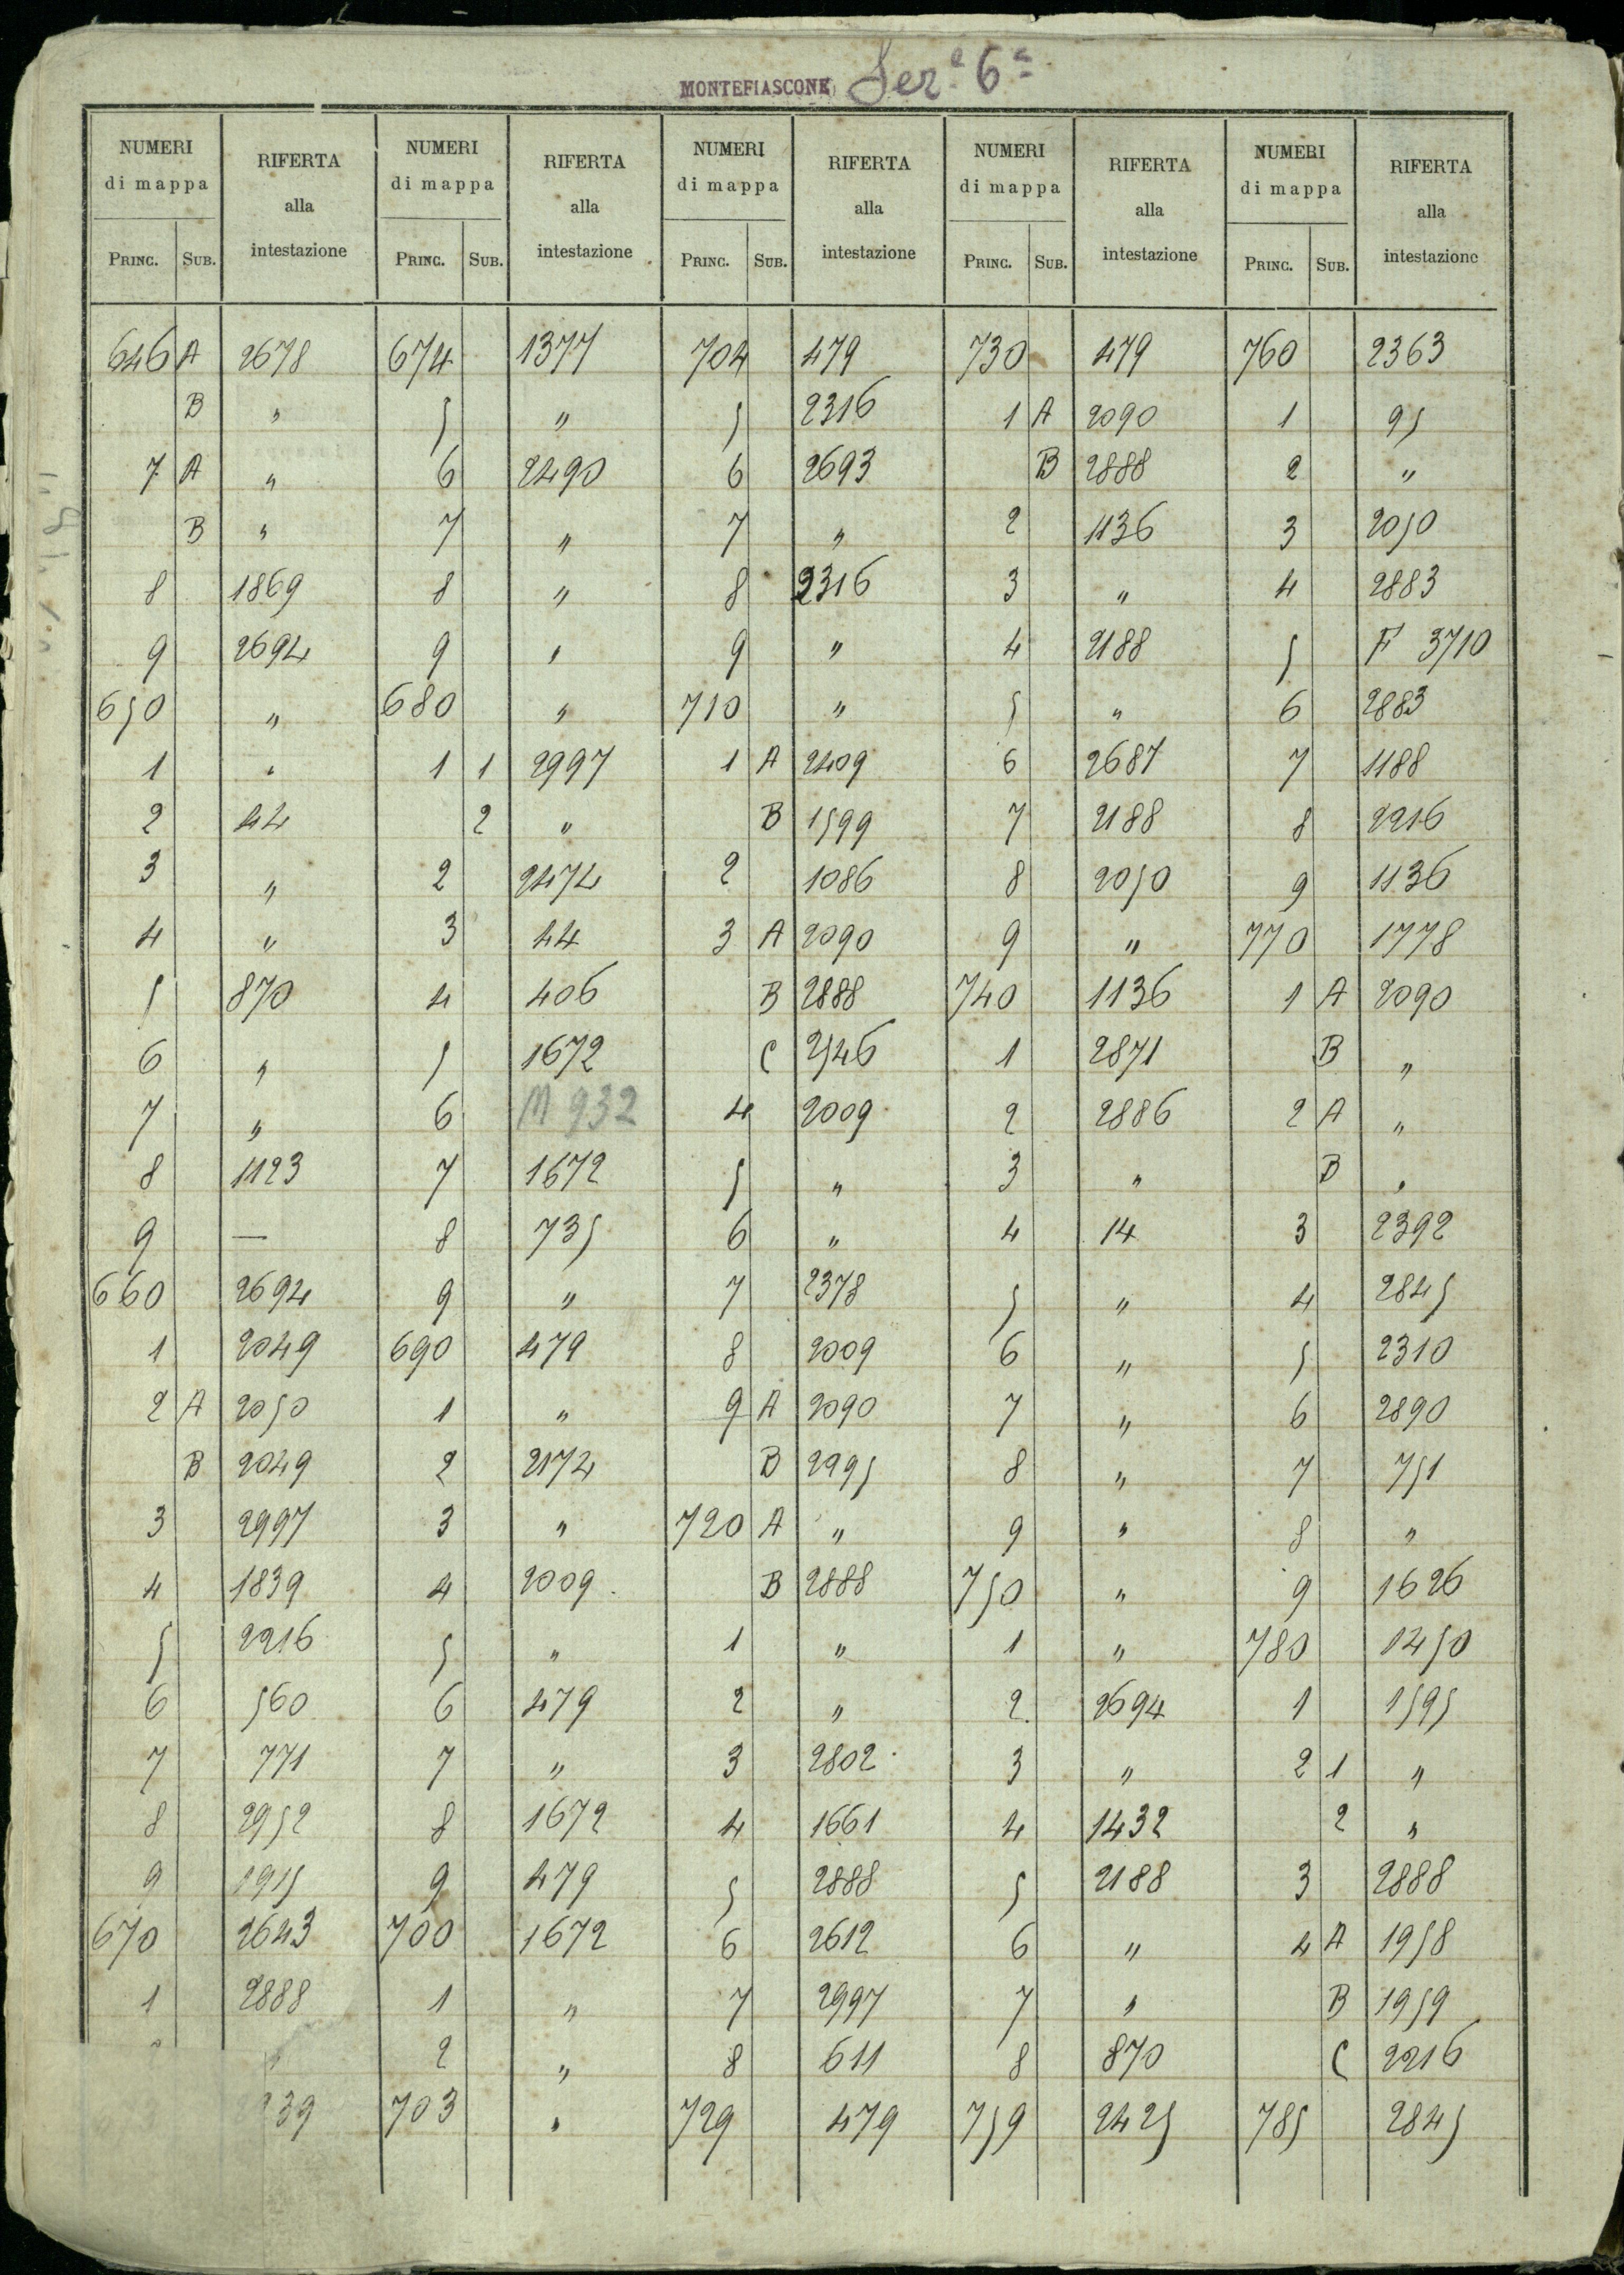 MONTEFIASCONE Serª 6ª
NUMERI di mappa RIFERTA alla intestazione NUMERI di mappa RIFERTA alla intestazione NUMERI di mappa RIFERTA alla intestazione NUMERI di mappa RIFERTA alla intestazione NUMERI di mappa RIFERTA alla intestazione
PRINC. SUB. PRINC. SUB. PRINC. SUB. PRINC. SUB. PRINC. SUB.
646 A 2678 674 1377 704 479 730 479 760 2363
B " 5 " 5 2316 1 A 2090 1 95
7 A " 6 2490 6 2693 B 2888 2 "
B " 7 " 7 " 2 1136 3 2050
8 1869 8 " 8 2316 3 " 4 2883
9 2694 9 " 9 " 4 2188 5 F 3710
650 " 680 " 710 " 5 " 6 2883
1 " 1 1 2997 1 A 2409 6 2687 7 1188
2 44 2 " B 1599 7 2188 8 2216
3 " 2 2474 2 1086 8 2050 9 1136
4 " 3 44 3 A 2090 9 " 770 1778
5 870 4 406 B 2888 740 1136 1 A 2090
6 " 5 1672 C 2546 1 2871 B "
7 " 6 M 932 4 2009 2 2886 2 A "
8 1123 7 1672 5 " 3 " B "
9 — 8 735 6 " 4 14 3 2392
660 2694 9 " 7 2378 5 " 4 2845
1 2049 690 479 8 2009 6 " 5 2310
2 A 2050 1 " 9 A 2090 7 " 6 2890
B 2049 2 2174 B 2995 8 " 7 751
3 2997 3 " 720 A " 9 " 8 "
4 1839 4 2009 B 2888 750 " 9 1626
5 2216 5 " 1 " 1 " 780 1450
6 560 6 479 2 " 2 2694 1 1595
7 771 7 " 3 2802 3 " 2 1 "
8 2952 8 1672 4 1661 4 1432 2 "
9 1915 9 479 5 2888 5 2188 3 2888
670 2643 700 1672 6 2612 6 " 4 A 1958
1 2888 1 " 7 2997 7 " B 1959
2 " 8 611 8 870 C 2216
39 703 " 729 479 759 2425 785 2845